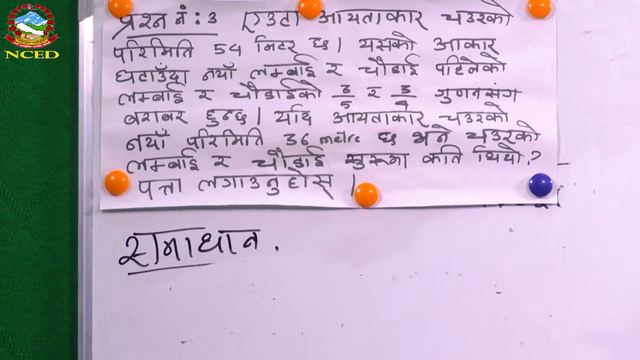 NCED
प्रश्न नं: 3 एउटा आयताकार चउरको
परिमिति 54 मिटर छ। यसको आकार
घटाउँदा नयाँ लम्बाई र चौडाई पहिलेको
लम्बाई र चौडाईको 3/5 र 3/4 गुणनसंग
बराबर हुन्छ। यदि आयताकार चउरको
नयाँ परिमिति 36 metre छ भने चउरको
लम्बाई र चौडाई सुरुमा कति थियो?
पत्ता लगाउनुहोस् ।
समाधान.